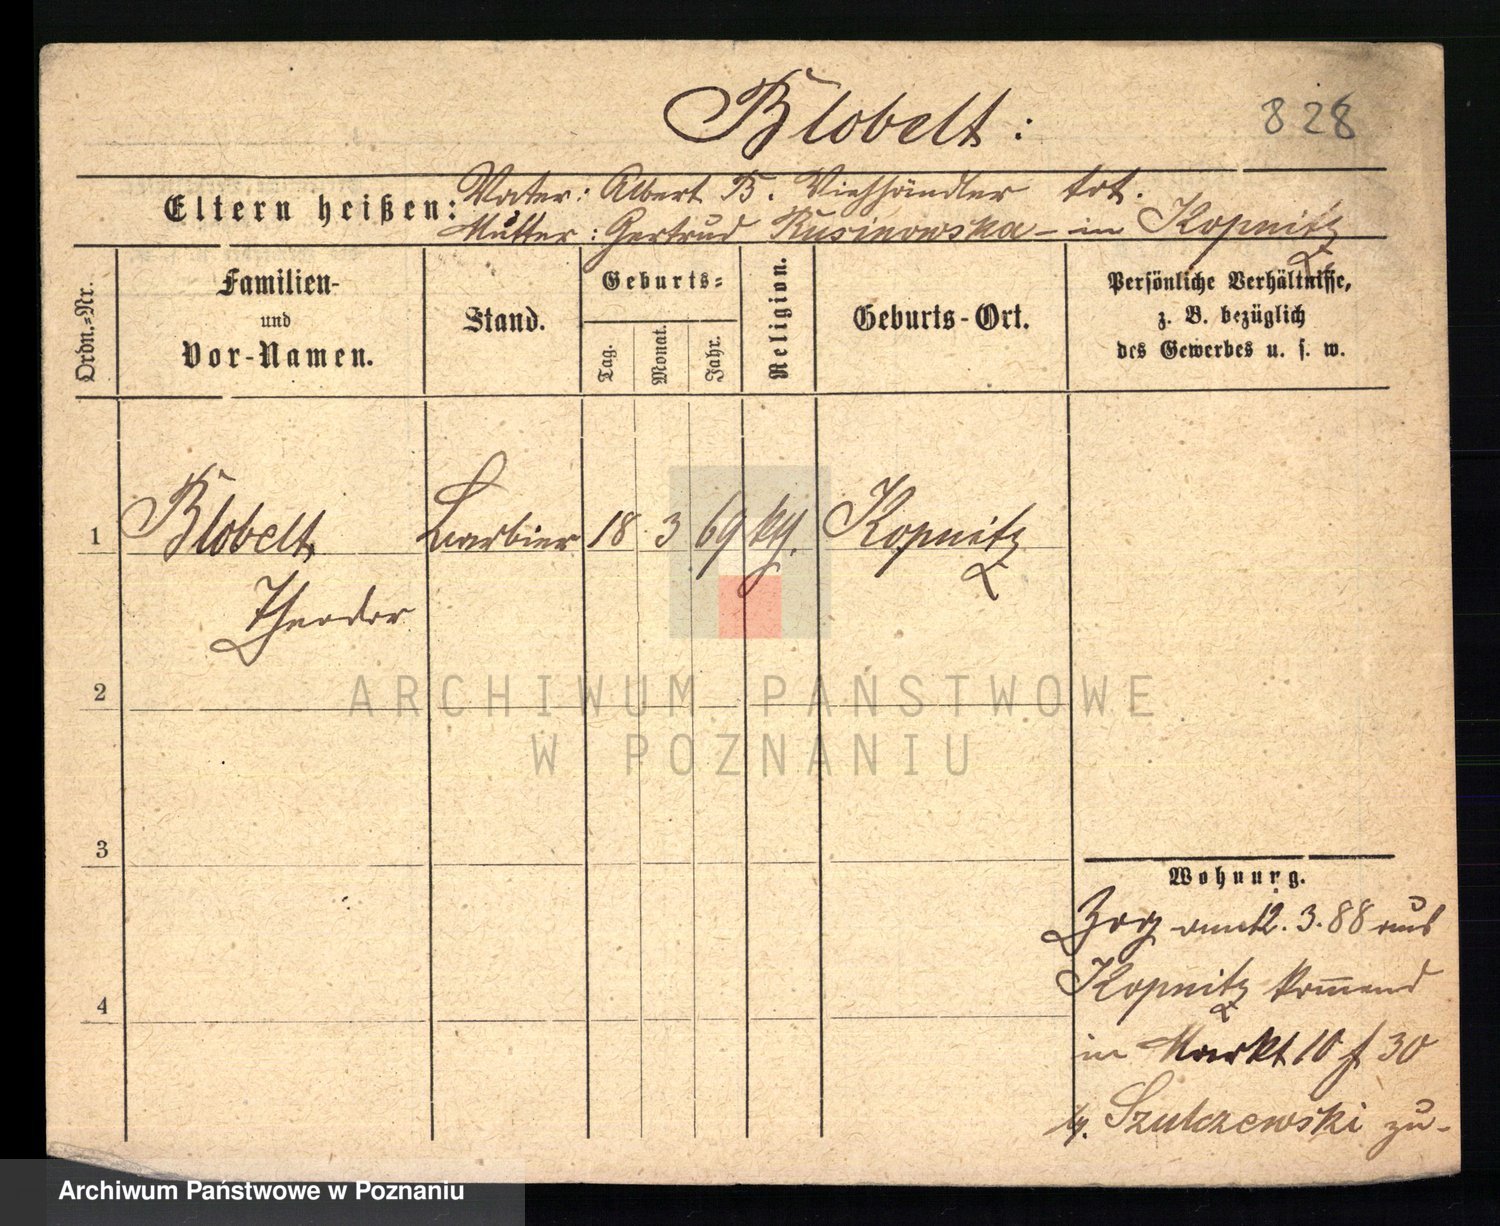 Blobelt:
828
Eltern heißen:
Vater: Albert B. Viehhändler tot.
Mutter: Gertrud Rusinowska - in Kopnitz
Ordn.=Nr.
Familien-
und
Vor-Namen.
Stand.
Geburts=
Tag.
Monat.
Jahr.
Religion.
Geburts-Ort.
Persönliche Verhältnisse,
z. B. bezüglich
des Gewerbes u. s. w.
1 Blobelt, Barbier 18 3 69 kth. Kopnitz
Theodor
2
3
4
Wohnung.
Zog am 12. 3. 88 aus
Kopnitz kom̅end
in Markt 10 f 30
b. Szulczewski zu-
ARCHIWUM PAŃSTWOWE
W POZNANIU
Archiwum Państwowe w Poznaniu